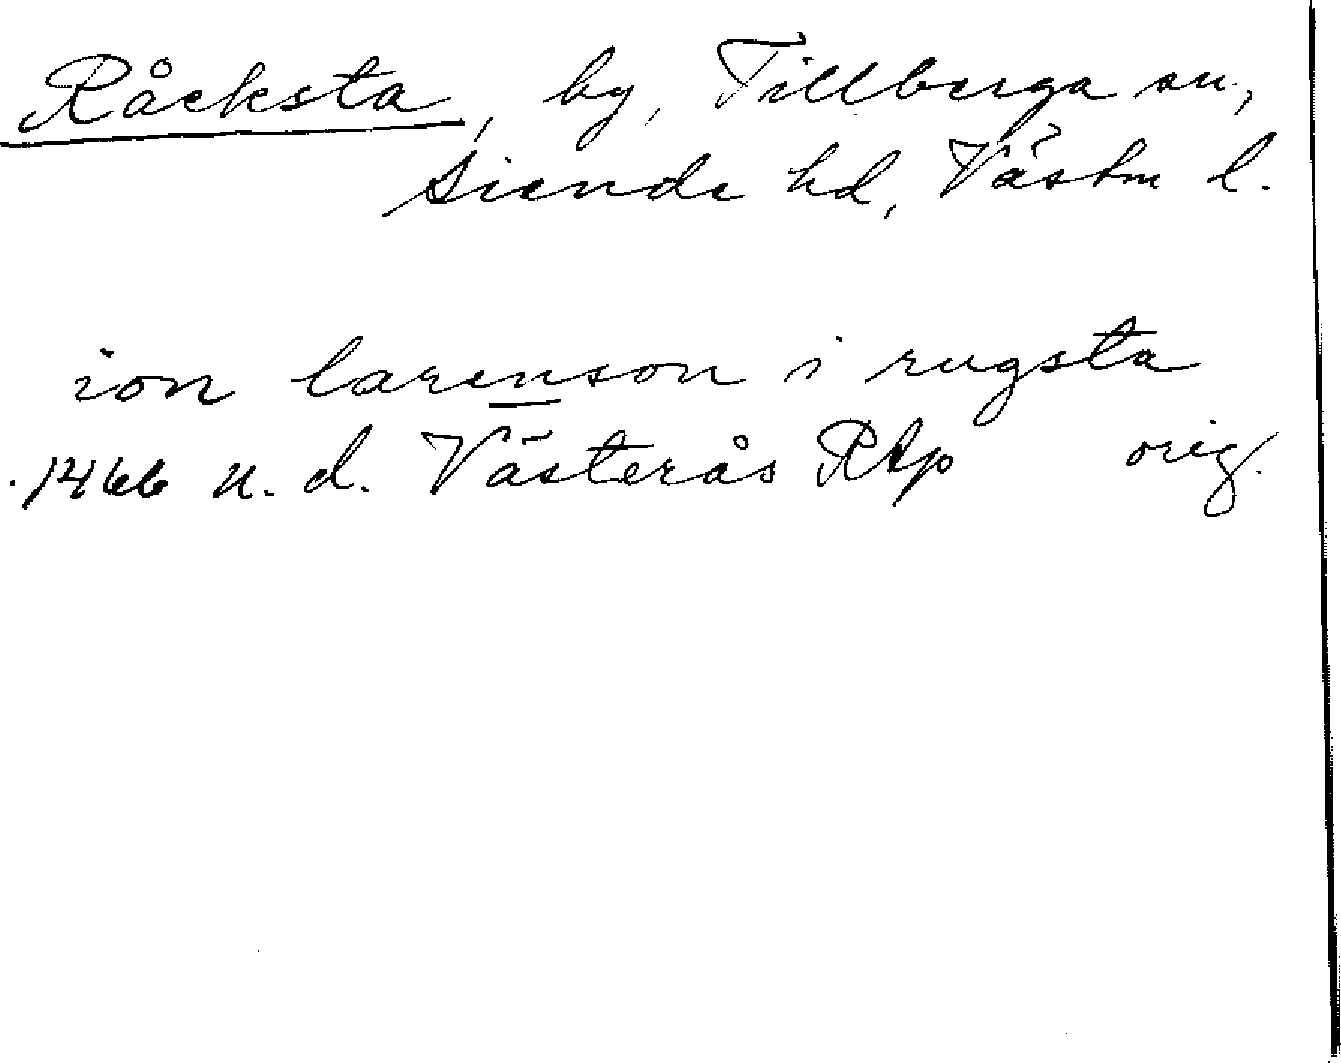 Råcksta, by, Tillberga sn.,
Siende hd, Västm l.
ion larenson i rugsta
1466 u. d. Västerås Rap orig.